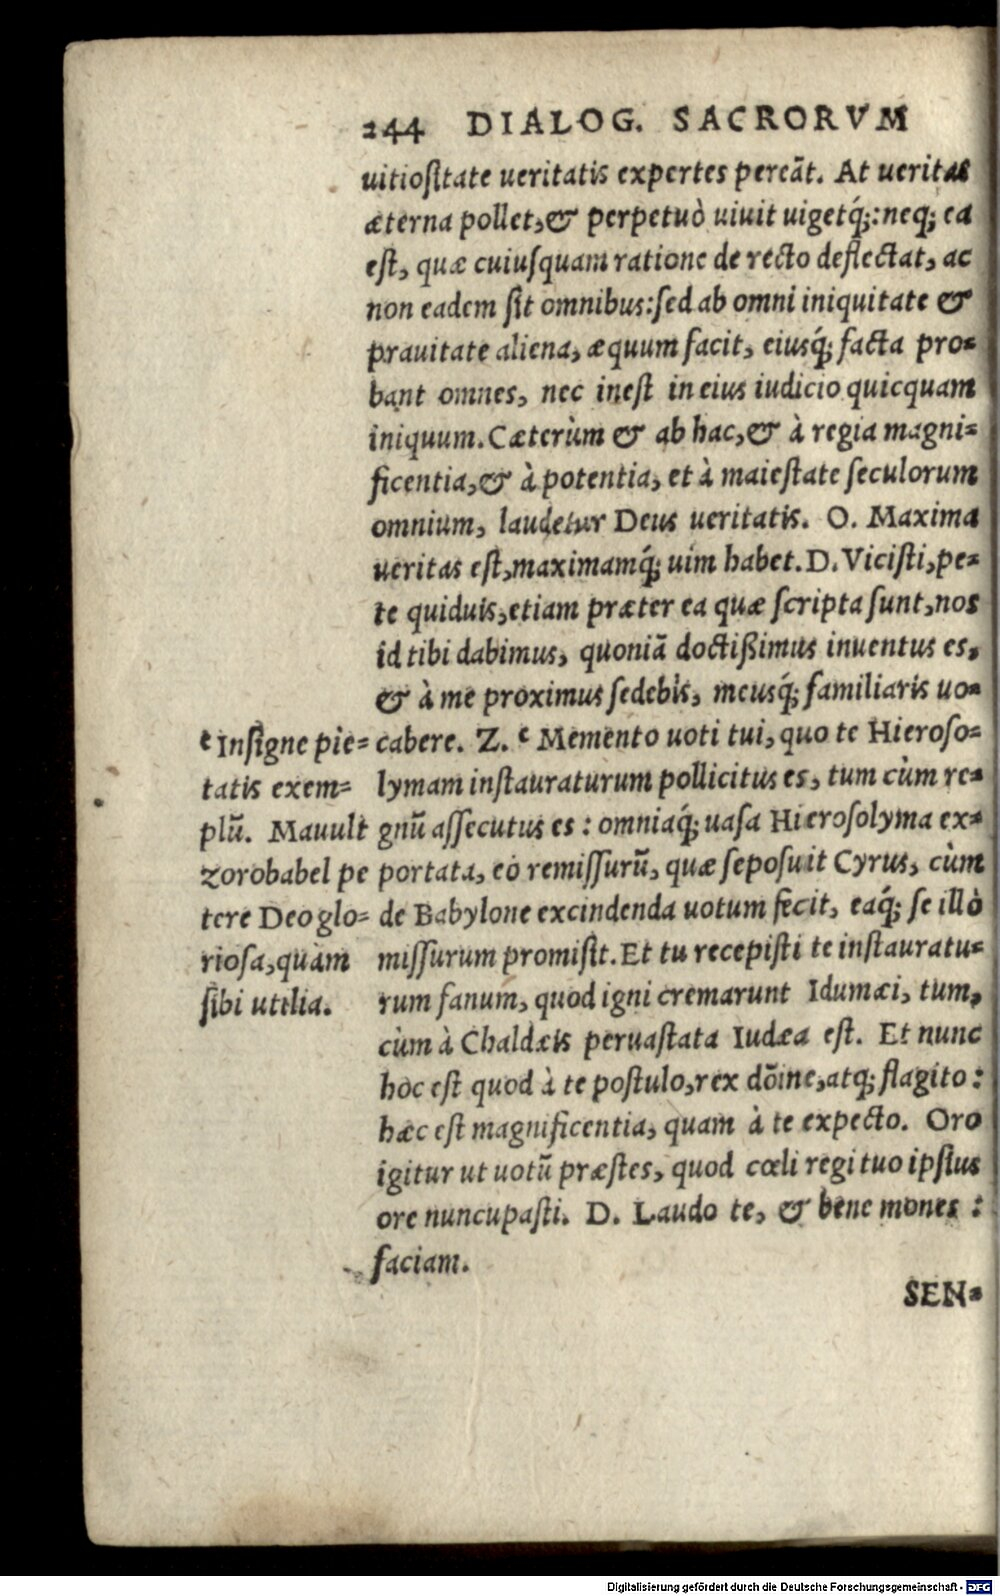 244 DIALOG. SACRORVM
uitiositate ueritatis expertes pereāt. At ueritas
æterna pollet, & perpetuò uiuit uigetq́;: neq; ea
est, quæ cuiusquam ratione de recto deflectat, ac
non eadem sit omnibus: sed ab omni iniquitate &
prauitate aliena, æquum facit, eiusq́; facta pro-
bant omnes, nec inest in eius iudicio quicquam
iniquum. Cæterùm & ab hac, & à regia magni-
ficentia, & à potentia, et à maiestate seculorum
omnium, laudetur Deus ueritatis. O. Maxima
ueritas est, maximamq́; uim habet. D. Vicisti, pe-
te quiduis, etiam præter ea quæ scripta sunt, nos
id tibi dabimus, quoniā doctißimus inuentus es,
& à me proximus sedebis, meusq́; familiaris uo-
cabere. Z. ᵉ Memento uoti tui, quo te Hieroso-
lymam instauraturum pollicitus es, tum cùm re-
gnū assecutus es: omniaq́; uasa Hierosolyma ex-
portata, eò remissurū, quæ seposuit Cyrus, cùm
de Babylone excindenda uotum fecit, eaq́; se illò
missurum promisit. Et tu recepisti te instauratu-
rum fanum, quod igni cremarunt Idumæi, tum,
cùm à Chaldæis peruastata Iudæa est. Et nunc
hoc est quod à te postulo, rex dōine, atq; flagito:
hæc est magnificentia, quam à te expecto. Oro
igitur ut uotū præstes, quod cœli regi tuo ipsius
ore nuncupasti. D. Laudo te, & bene mones:
faciam.
ᵉ Insigne pie-
tatis exem-
plū. Mauult
zorobabel pe
tere Deo glo-
riosa, quàm
sibi utilia.
SEN-
Digitalisierung gefördert durch die Deutsche Forschungsgemeinschaft - DFG